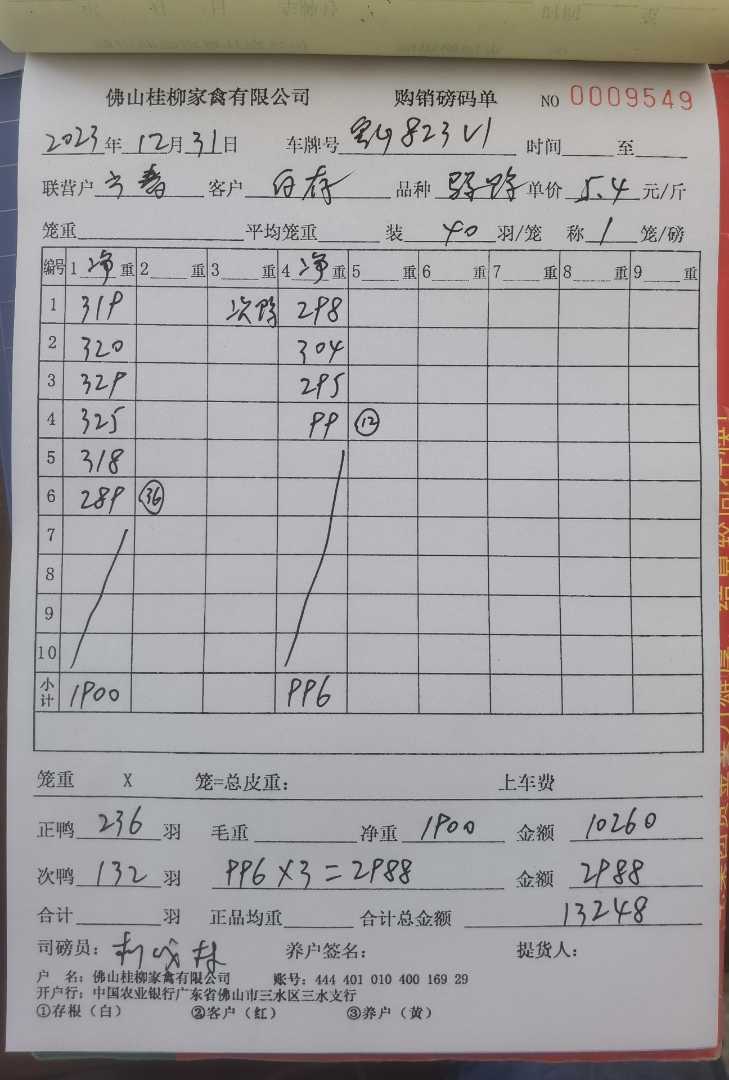 佛山桂柳家禽有限公司 购销磅码单 NO 0009549
2023年12月31日 车牌号 823V1 时间 至
联营户 客户 品种 单价 5.4 元/斤
笼重 平均笼重 装 40 羽/笼 称 1 笼/磅
编号 1 净 重 2 重 3 重 4 净 重 5 重 6 重 7 重 8 重 9 重
1 319 次 298
2 320 304
3 329 295
4 325 99 ⑫
5 318
6 289 ㊱
7
8
9
10
小计 1900 996
笼重 X 笼=总皮重: 上车费
正鸭 236 羽 毛重 净重 1900 金额 10260
次鸭 132 羽 996×3=2988 金额 2988
合计 羽 正品均重 合计总金额 13248
司磅员: 养户签名: 提货人:
户 名: 佛山桂柳家禽有限公司 账号: 444 401 010 400 169 29
开户行: 中国农业银行广东省佛山市三水区三水支行
①存根(白) ②客户(红) ③养户(黄)